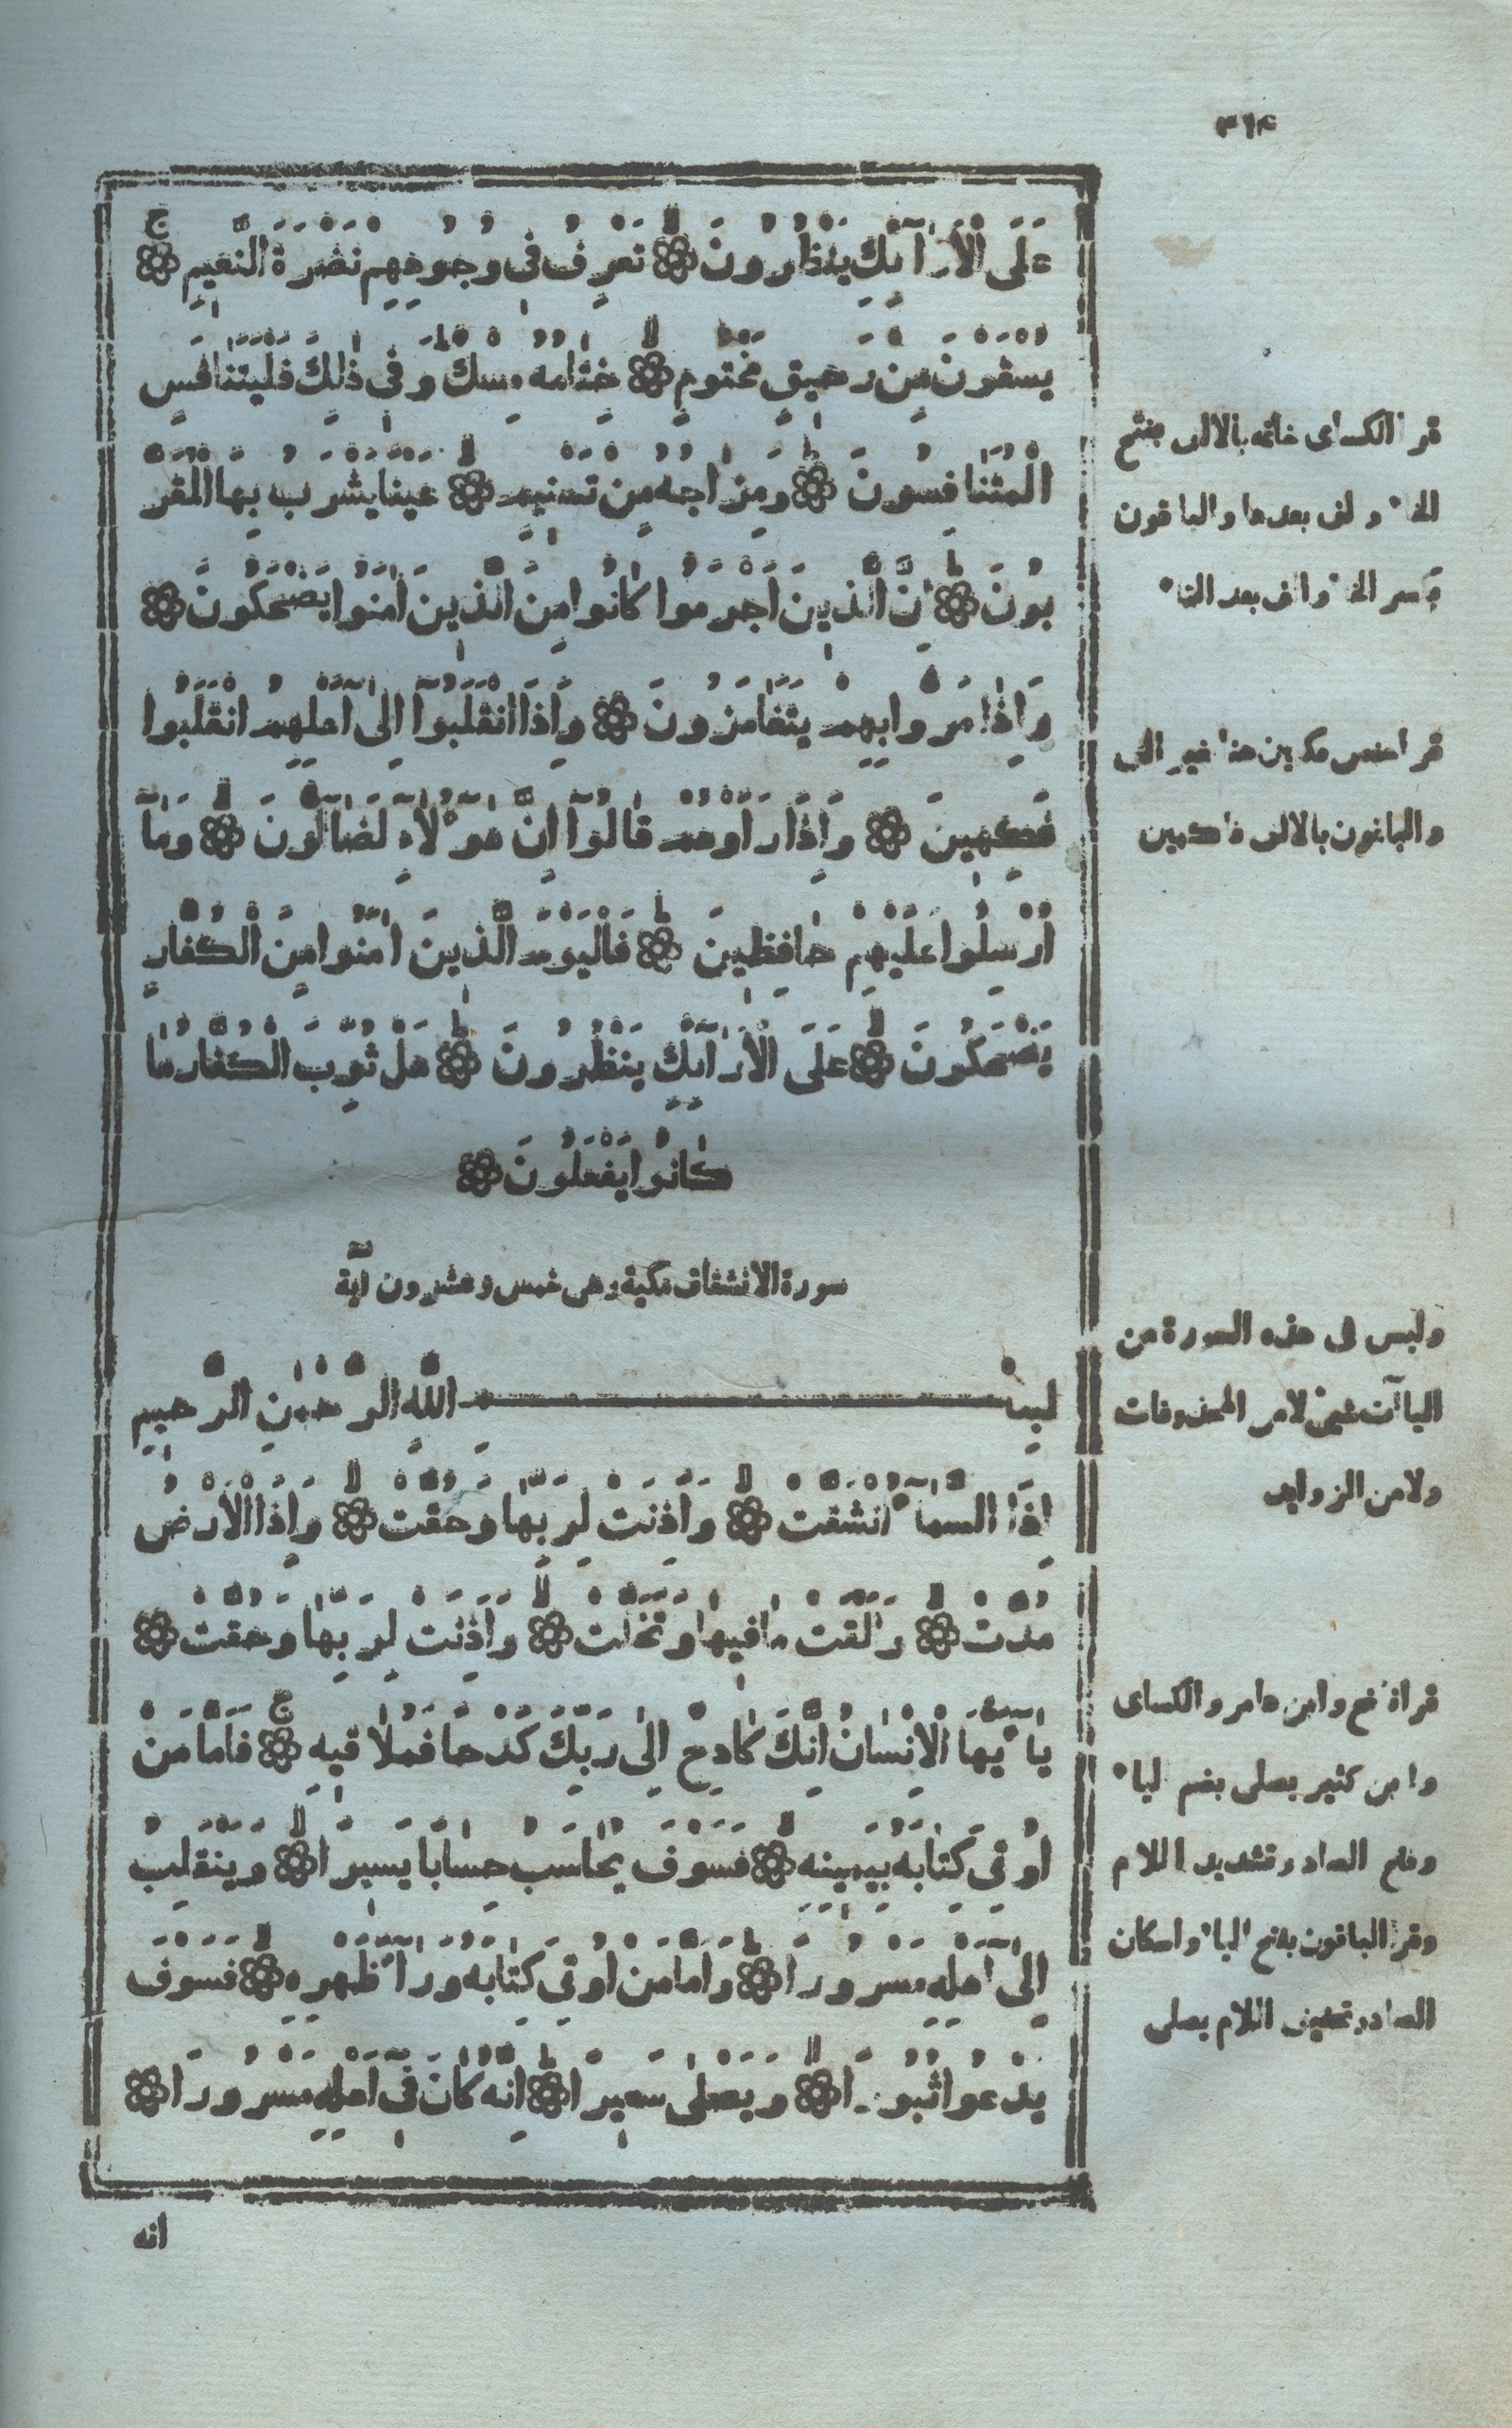 ٣١٤
عَلَى الْاَرَآئِكِ يَنْظُرُونَ ۙ تَعْرِفُ فِى وُجُوهِهِمْ نَضْرَةَ النَّعِيمِ ۚ
يُسْقَوْنَ مِنْ رَحِيقٍ مَخْتُومٍ ۙ خِتَامُهُ مِسْكٌ ۗ وَفِى ذٰلِكَ فَلْيَتَنَافَسِ
الْمُتَنَافِسُونَ ۗ وَمِزَاجُهُ مِنْ تَسْنِيمٍ ۙ عَيْنًا يَشْرَبُ بِهَا الْمُقَرَّ
بُونَ ۗ اِنَّ الَّذِينَ اَجْرَمُوا كَانُوا مِنَ الَّذِينَ اٰمَنُوا يَضْحَكُونَ
وَاِذَا مَرُّوا بِهِمْ يَتَغَامَزُونَ وَاِذَا انْقَلَبُوٓا اِلٰٓى اَهْلِهِمُ انْقَلَبُوا
فَكِهِينَ وَاِذَا رَاَوْهُمْ قَالُوٓا اِنَّ هٰٓؤُلَآءِ لَضَآلُّونَ ۙ وَمَآ
اُرْسِلُوا عَلَيْهِمْ حَافِظِينَ ۗ فَالْيَوْمَ الَّذِينَ اٰمَنُوا مِنَ الْكُفَّارِ
يَضْحَكُونَ ۙ عَلَى الْاَرَآئِكِ يَنْظُرُونَ ۗ هَلْ ثُوِّبَ الْكُفَّارُ مَا
كَانُوا يَفْعَلُونَ
سورة الانشقاق مكية وهى خمس وعشرون اٰية
بِسْمِ اللّٰهِ الرَّحْمٰنِ الرَّحِيمِ
اِذَا السَّمَآءُ انْشَقَّتْ ۙ وَاَذِنَتْ لِرَبِّهَا وَحُقَّتْ ۙ وَاِذَا الْاَرْضُ
مُدَّتْ ۙ وَاَلْقَتْ مَا فِيهَا وَتَخَلَّتْ ۙ وَاَذِنَتْ لِرَبِّهَا وَحُقَّتْ
يَآ اَيُّهَا الْاِنْسَانُ اِنَّكَ كَادِحٌ اِلٰى رَبِّكَ كَدْحًا فَمُلَاقِيهِ ۚ فَاَمَّا مَنْ
اُوتِىَ كِتَابَهُ بِيَمِينِهِ ۙ فَسَوْفَ يُحَاسَبُ حِسَابًا يَسِيرًا ۙ وَيَنْقَلِبُ
اِلٰٓى اَهْلِهِ مَسْرُورًا ۗ وَاَمَّا مَنْ اُوتِىَ كِتَابَهُ وَرَآءَ ظَهْرِهِ ۙ فَسَوْفَ
يَدْعُوا ثُبُورًا ۙ وَيَصْلٰى سَعِيرًا ۗ اِنَّهُ كَانَ فِىٓ اَهْلِهِ مَسْرُورًا
انه
قرا الكساى خاتمه بالالف بفتح
الخاء والف بعدها والباقون
بكسر الخاء والف بعد التاء
قرا حفص فكهين هنا بغير الف
والباقون بالالف فاكهين
وليس فى هذه السورة من
الياآت شىء لا من المحذوفات
ولا من الزوايد
قرا نافع وابن عامر والكساى
وابن كثير يصلى بضم الياء
وفتح الصاد وتشديد اللام
وقرا الباقون بفتح الياء واسكان
الصاد وتخفيف اللام يصلى